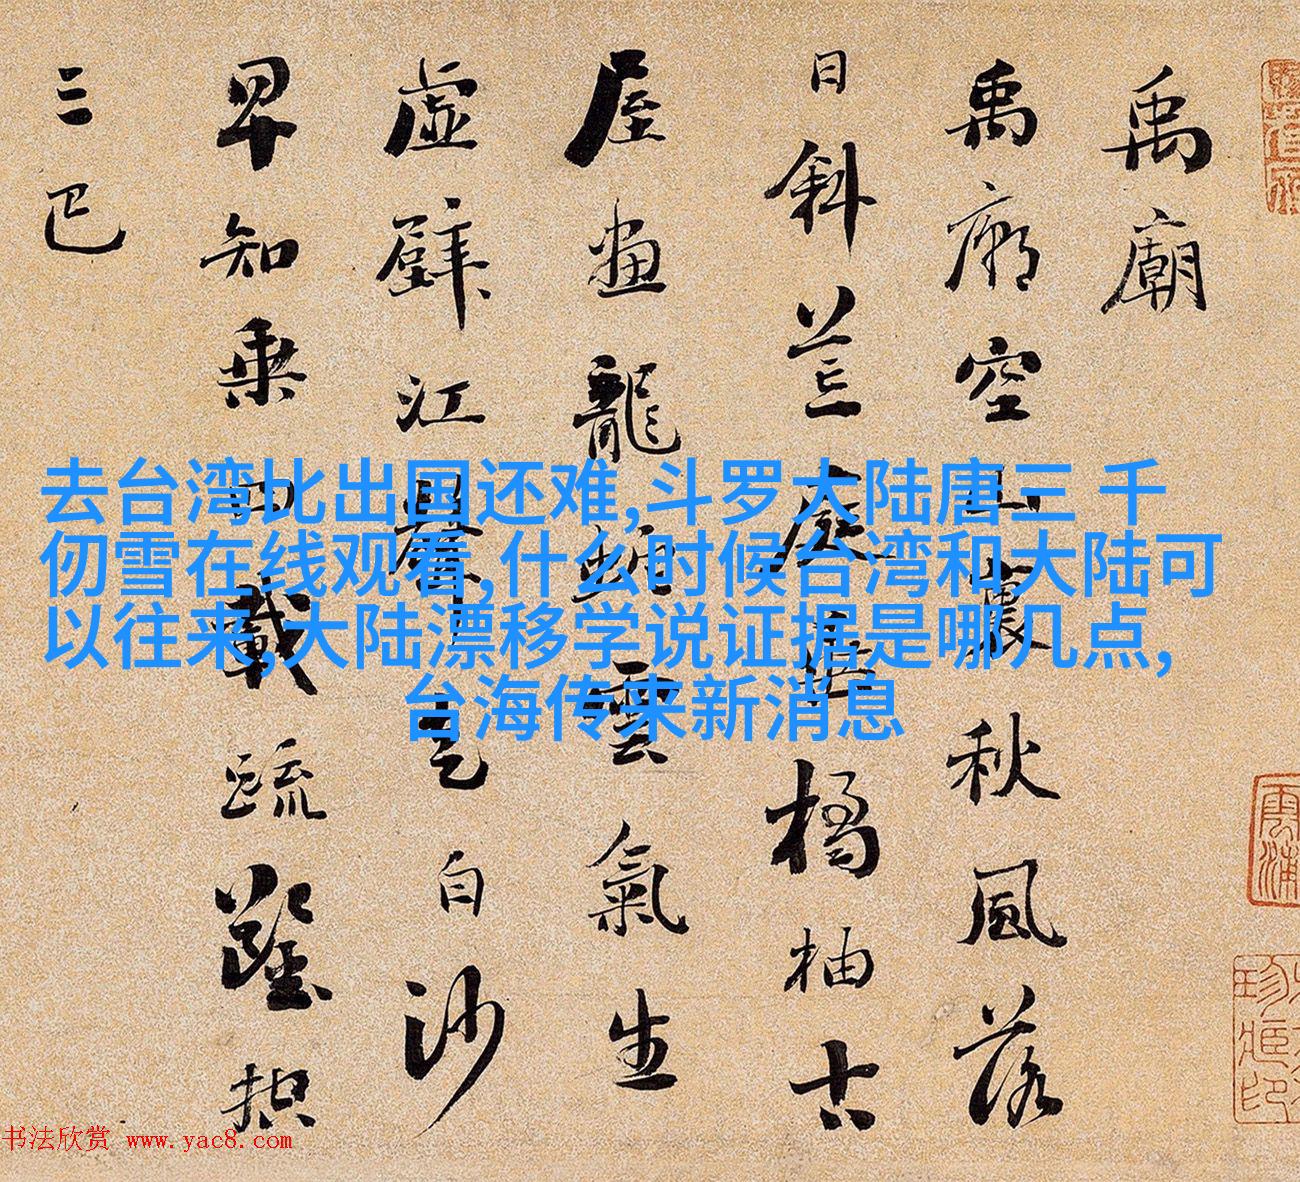 禹廟
禹廟空山裏秋風落
日斜荒庭垂橘柚古
屋畫龍蛇雲氣生
虛壁江聲走白沙
早知乘四載疏鑿控
三巴
去台湾比出国还难,斗罗大陆唐三 千
仞雪在线观看,什么时候台湾和大陆可
以往来,大陆漂移学说证据是哪几点,
台海传来新消息
书法欣赏 www.yac8.com